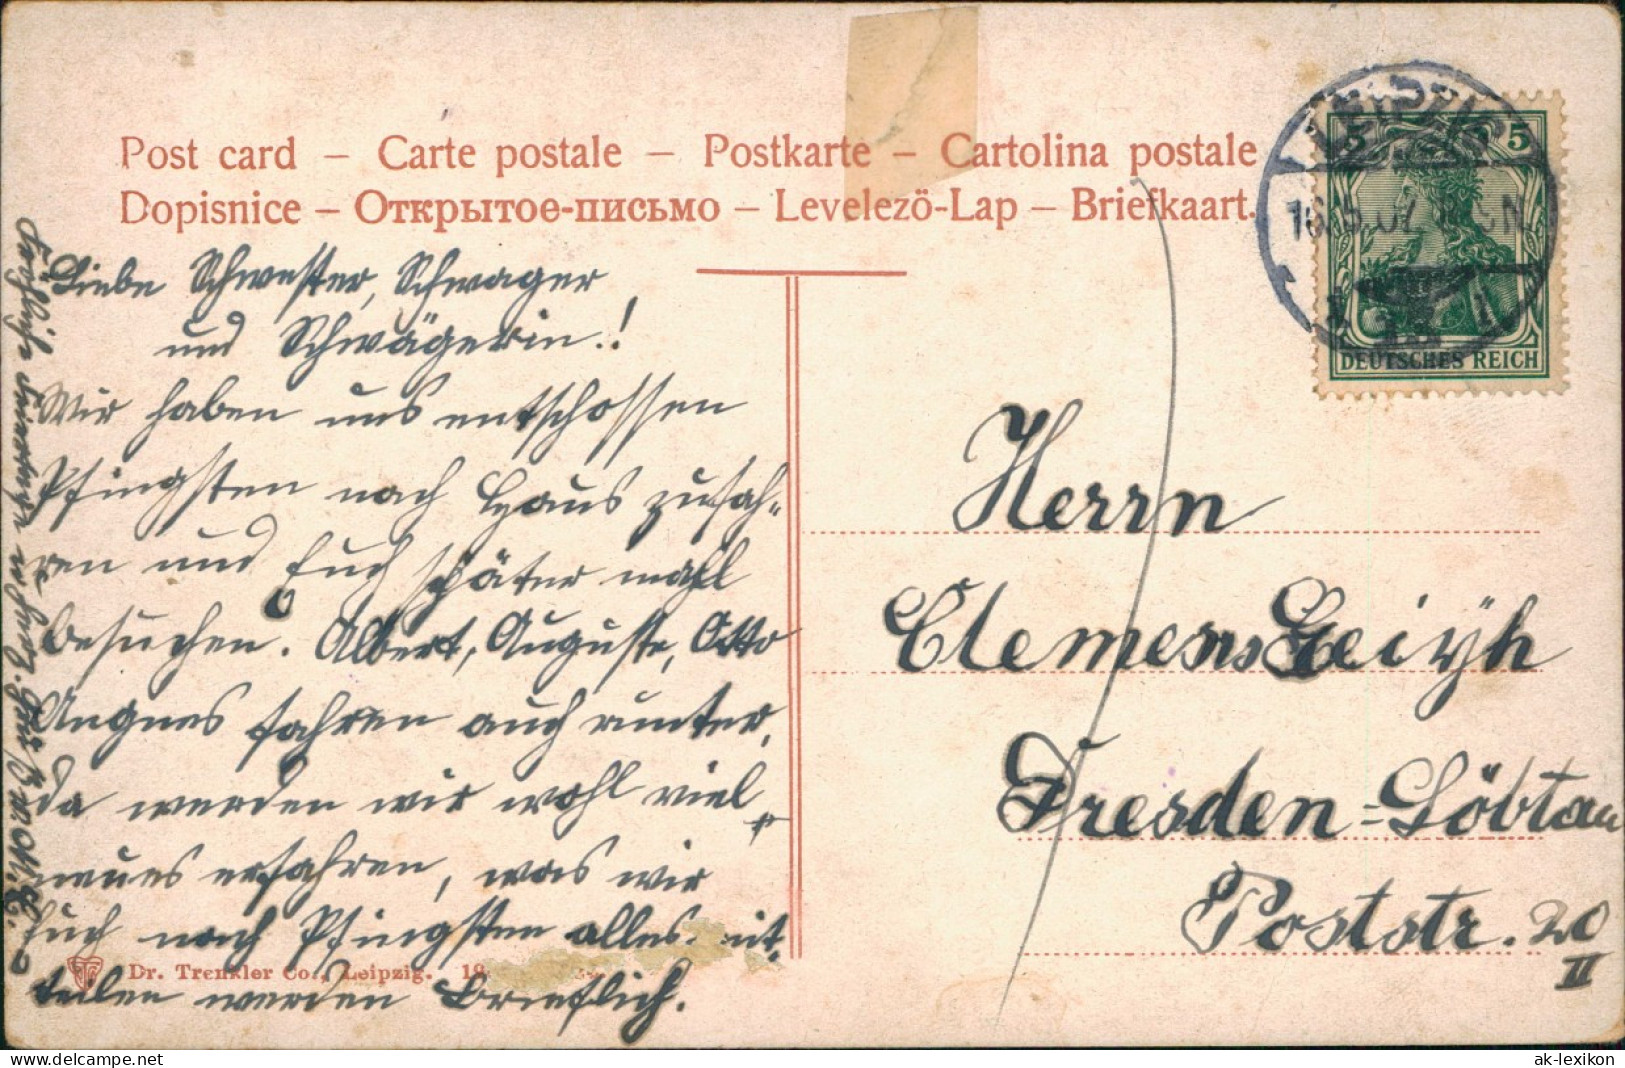 Post card – Carte postale – Postkarte – Cartolina postale
Dopisnice – Открытое-письмо – Levelezö-Lap – Briefkaart.
LEIPZIG
5 5
DEUTSCHES REICH
Liebe Schwester, Schwager
und Schwägerin!
Wir haben uns entschossen
Pfingsten nach Haus zufah-
ren und Euch später mahl
besuchen. Albert, Auguste, Otto
Angnes fahren auch runter,
da werden wir wohl viel
neues erfahren, was wir
Euch nach Pfingsten alles mit
teilen werden Brieflich.
Herrn
Clemens
Dresden-Löbtau
Poststr. 20
II
Dr. Trenkler Co., Leipzig. 19
ak-lexikon
https://www.delcampe.net